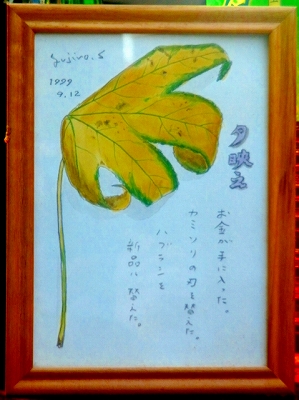 yujiro.S
1999
9.12
夕映え
お金が手に入った。
カミソリの刃を替えた。
ハブラシを
新品に替えた。